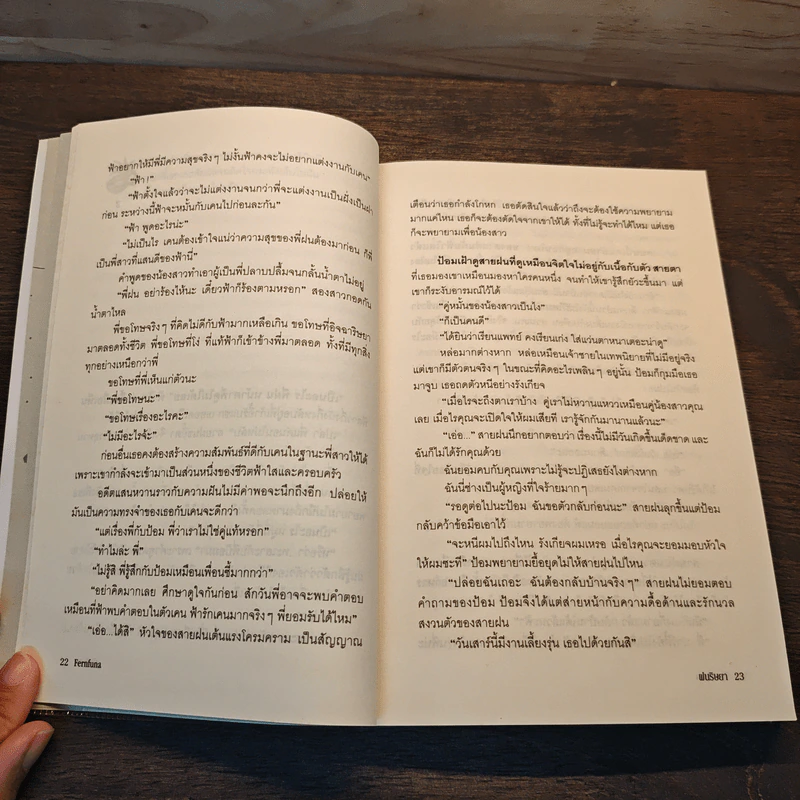 ฟ้าอยากให้มีพี่มีความสุขจริงๆ ไม่งั้นฟ้าคงจะไม่อยากแต่งงานกับเคน”
“ฟ้า !”
“ฟ้าตั้งใจแล้วว่าจะไม่แต่งงานจนกว่าพี่จะแต่งงานเป็นฝั่งเป็นฝา
ก่อน ระหว่างนี้ฟ้าจะหมั้นกับเคนไปก่อนละกัน”
“ฟ้า พูดอะไรน่ะ”
“ไม่เป็นไร เคนต้องเข้าใจแน่ว่าความสุขของพี่ฝนต้องมาก่อน ก็พี่
เป็นพี่สาวที่แสนดีของฟ้านี่”
คำพูดของน้องสาวทำเอาผู้เป็นพี่ปลาบปลื้มจนกลั้นน้ำตาไม่อยู่
“พี่ฝน อย่าร้องไห้นะ เดี๋ยวฟ้าก็ร้องตามหรอก” สองสาวกอดกัน
น้ำตาไหล
พี่ขอโทษจริงๆ ที่คิดไม่ดีกับฟ้ามากเหลือเกิน ขอโทษที่อิจฉาริษยา
มาตลอดทั้งชีวิต พี่ขอโทษที่โง่ ที่แท้ฟ้าก็เข้าข้างพี่มาตลอด ทั้งที่มีทุกสิ่ง
ทุกอย่างเหนือกว่าพี่
ขอโทษที่พี่เห็นแก่ตัวนะ
“พี่ขอโทษนะ”
“ขอโทษเรื่องอะไรคะ”
“ไม่มีอะไรจ้ะ”
ก่อนอื่นเธอคงต้องสร้างความสัมพันธ์ที่ดีกับเคนในฐานะพี่สาวให้ได้
เพราะเขากำลังจะเข้ามาเป็นส่วนหนึ่งของชีวิตฟ้าใสและครอบครัว
อดีตแสนหวานราวกับความฝันไม่มีค่าพอจะนึกถึงอีก ปล่อยให้
มันเป็นความทรงจำของเธอกับเคนจะดีกว่า
“แต่เรื่องพี่กับป้อม พี่ว่าเราไม่ใช่คู่แท้หรอก”
“ทำไมล่ะ พี่”
“ไม่รู้สิ พี่รู้สึกกับป้อมเหมือนเพื่อนซี้มากกว่า”
“อย่าคิดมากเลย ศึกษาดูใจกันก่อน สักวันพี่อาจจะพบคำตอบ
เหมือนที่ฟ้าพบคำตอบในตัวเคน ฟ้ารักเคนมากจริงๆ พี่ยอมรับได้ไหม”
“เอ่อ...ได้สิ” หัวใจของสายฝนเต้นแรงโครมคราม เป็นสัญญาณ
22 Fernfuna
เตือนว่าเธอกำลังโกหก เธอตัดสินใจแล้วว่าถึงจะต้องใช้ความพยายาม
มากแค่ไหน เธอก็จะต้องตัดใจจากเขาให้ได้ ทั้งที่ไม่รู้จะทำได้ไหม แต่เธอ
ก็จะพยายามเพื่อน้องสาว
ป้อมเฝ้าดูสายฝนที่ดูเหมือนจิตใจไม่อยู่กับเนื้อกับตัว สายตา
ที่เธอมองเขาเหมือนมองหาใครคนหนึ่ง จนทำให้เขารู้สึกยัวะขึ้นมา แต่
เขาก็ระงับอารมณ์ไว้ได้
“คู่หมั้นของน้องสาวเป็นไง”
“ก็เป็นคนดี”
“ได้ยินว่าเรียนแพทย์ คงเรียนเก่ง ใส่แว่นตาหนาเตอะน่าดู”
หล่อมากต่างหาก หล่อเหมือนเจ้าชายในเทพนิยายที่ไม่มีอยู่จริง
แต่เขาก็มีตัวตนจริงๆ ในขณะที่คิดอะไรเพลินๆ อยู่นั้น ป้อมก็กุมมือเธอ
มาจูบ เธอถดตัวหนีอย่างรังเกียจ
“เมื่อไรจะถึงตาเราบ้าง คู่เราไม่หวานแหววเหมือนคู่น้องสาวคุณ
เลย เมื่อไรคุณจะเปิดใจให้ผมเสียที เรารู้จักกันมานานแล้วนะ”
“เอ่อ...” สายฝนนึกอยากตอบว่า เรื่องนี้ไม่มีวันเกิดขึ้นเด็ดขาด และ
ฉันก็ไม่ได้รักคุณด้วย
ฉันยอมคบกับคุณเพราะไม่รู้จะปฏิเสธยังไงต่างหาก
ฉันนี่ช่างเป็นผู้หญิงที่ใจร้ายมากๆ
“รอดูต่อไปนะป้อม ฉันขอตัวกลับก่อนนะ” สายฝนลุกขึ้นแต่ป้อม
กลับคว้าข้อมือเอาไว้
“จะหนีผมไปถึงไหน รังเกียจผมเหรอ เมื่อไรคุณจะยอมมอบหัวใจ
ให้ผมซะที” ป้อมพยายามยื้อยุดไม่ให้สายฝนไปไหน
“ปล่อยฉันเถอะ ฉันต้องกลับบ้านจริงๆ” สายฝนไม่ยอมตอบ
คำถามของป้อม ป้อมจึงได้แต่ส่ายหน้ากับความดื้อด้านและรักนวล
สงวนตัวของสายฝน
“วันเสาร์นี้มีงานเลี้ยงรุ่น เธอไปด้วยกันสิ”
ฝนริษยา 23